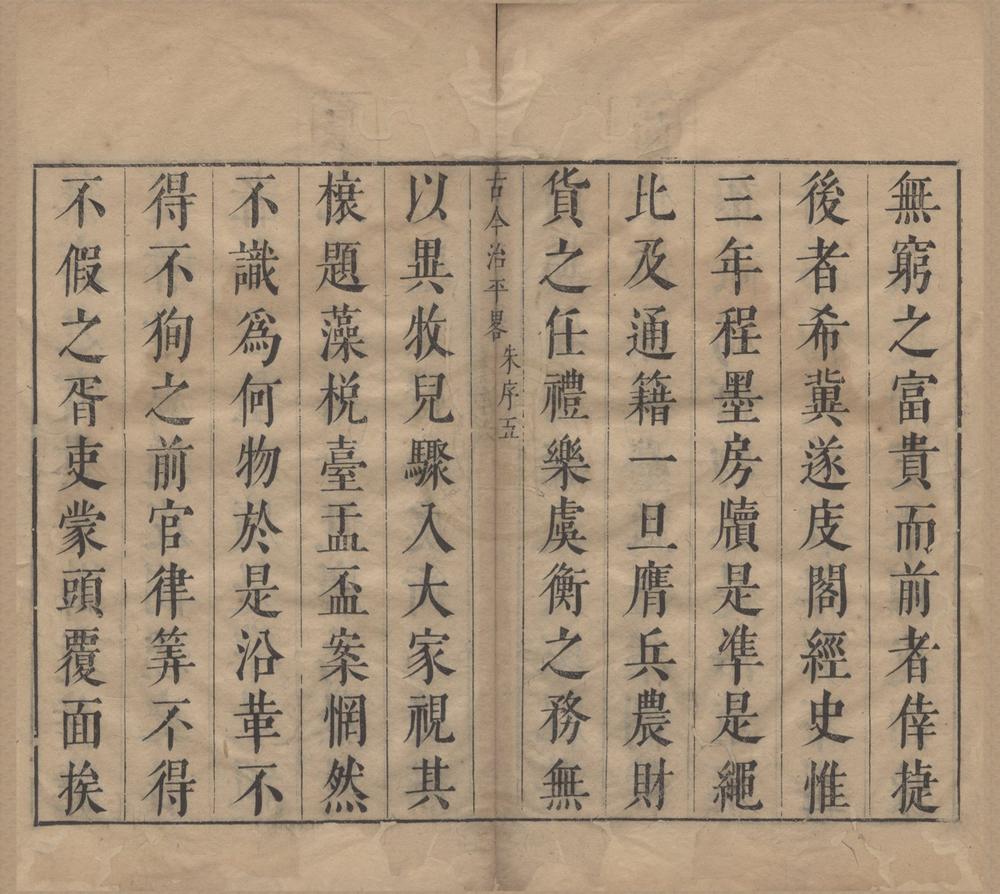 無窮之富貴而前者倖㨗
後者希兾遂庋閣經史惟
三年程墨房牘是準是繩
比及通籍一旦膺兵農財
貨之任禮樂虞衡之務無
古今治平畧
朱序五
以異牧兒驟入大家視其
榱題藻梲臺盂盃案惘然
不識爲何物於是沿革不
得不狥之前官律筭不得
不假之胥吏蒙頭覆面挨